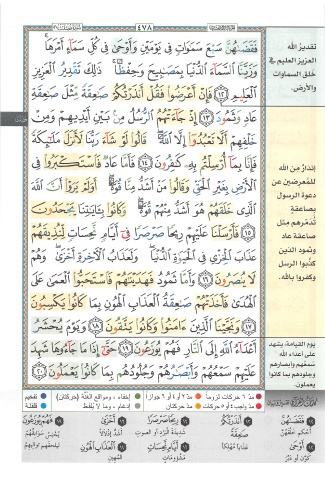 ٤٧٨
فَقَضَىٰهُنَّ سَبْعَ سَمَٰوَاتٍ فِى يَوْمَيْنِ وَأَوْحَىٰ فِى كُلِّ سَمَآءٍ أَمْرَهَا ۚ
وَزَيَّنَّا ٱلسَّمَآءَ ٱلدُّنْيَا بِمَصَٰبِيحَ وَحِفْظًا ۚ ذَٰلِكَ تَقْدِيرُ ٱلْعَزِيزِ
ٱلْعَلِيمِ ١٢ فَإِنْ أَعْرَضُوا۟ فَقُلْ أَنذَرْتُكُمْ صَٰعِقَةً مِّثْلَ صَٰعِقَةِ
عَادٍ وَثَمُودَ ١٣ إِذْ جَآءَتْهُمُ ٱلرُّسُلُ مِنۢ بَيْنِ أَيْدِيهِمْ وَمِنْ
خَلْفِهِمْ أَلَّا تَعْبُدُوٓا۟ إِلَّا ٱللَّهَ ۖ قَالُوا۟ لَوْ شَآءَ رَبُّنَا لَأَنزَلَ مَلَٰٓئِكَةً
فَإِنَّا بِمَآ أُرْسِلْتُم بِهِۦ كَٰفِرُونَ ١٤ فَأَمَّا عَادٌ فَٱسْتَكْبَرُوا۟ فِى
ٱلْأَرْضِ بِغَيْرِ ٱلْحَقِّ وَقَالُوا۟ مَنْ أَشَدُّ مِنَّا قُوَّةً ۖ أَوَلَمْ يَرَوْا۟ أَنَّ ٱللَّهَ
ٱلَّذِى خَلَقَهُمْ هُوَ أَشَدُّ مِنْهُمْ قُوَّةً ۖ وَكَانُوا۟ بِـَٔايَٰتِنَا يَجْحَدُونَ
١٥ فَأَرْسَلْنَا عَلَيْهِمْ رِيحًا صَرْصَرًا فِىٓ أَيَّامٍ نَّحِسَاتٍ لِّنُذِيقَهُمْ
عَذَابَ ٱلْخِزْىِ فِى ٱلْحَيَوٰةِ ٱلدُّنْيَا ۖ وَلَعَذَابُ ٱلْـَٔاخِرَةِ أَخْزَىٰ ۖ وَهُمْ
لَا يُنصَرُونَ ١٦ وَأَمَّا ثَمُودُ فَهَدَيْنَٰهُمْ فَٱسْتَحَبُّوا۟ ٱلْعَمَىٰ عَلَى
ٱلْهُدَىٰ فَأَخَذَتْهُمْ صَٰعِقَةُ ٱلْعَذَابِ ٱلْهُونِ بِمَا كَانُوا۟ يَكْسِبُونَ
١٧ وَنَجَّيْنَا ٱلَّذِينَ ءَامَنُوا۟ وَكَانُوا۟ يَتَّقُونَ ١٨ وَيَوْمَ يُحْشَرُ
أَعْدَآءُ ٱللَّهِ إِلَى ٱلنَّارِ فَهُمْ يُوزَعُونَ ١٩ حَتَّىٰٓ إِذَا مَا جَآءُوهَا شَهِدَ
عَلَيْهِمْ سَمْعُهُمْ وَأَبْصَٰرُهُمْ وَجُلُودُهُم بِمَا كَانُوا۟ يَعْمَلُونَ ٢٠
تقديرُ الله
العزيز العليم في
خلق السماوات
والأرض.
إنذارٌ من الله
للمعرضين عن
دعوة الرسول
بصاعقةٍ
تُدمّرهم مثل
صاعقة عاد
وثمود الذين
كذّبوا الرسل
وكفروا بالله.
يوم القيامة، يشهد
على أعداء الله
سمعهم وأبصارهم
وجلودهم بما كانوا
يكسبون.
مدّ ٦ حركات لزوماً
مدّ ٢ أو ٤ أو ٦ جوازاً
إخفاء، ومواقع الغُنّة (حركتان)
تفخيم
مدّ واجب ٤ أو ٥ حركات
مدّ حركتان
إدغام، وما لا يُلفظ
قلقلة